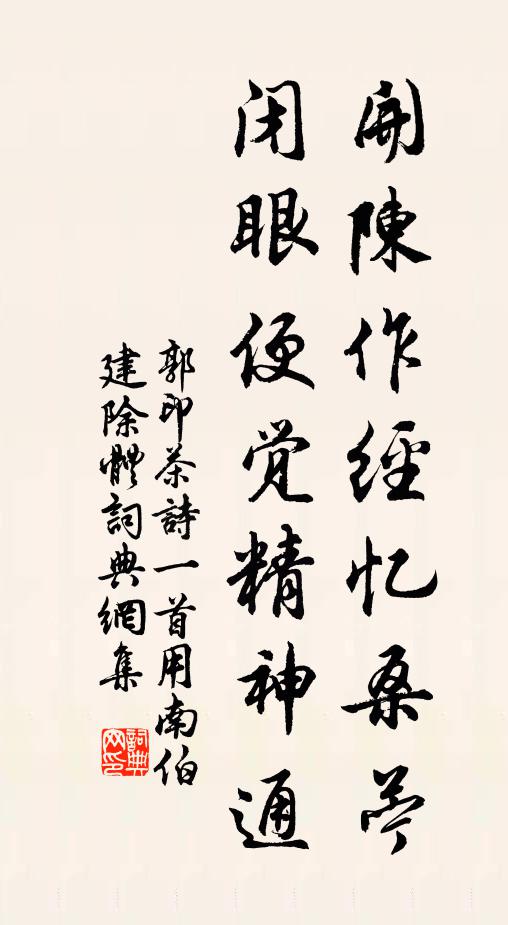 開陳作經忆桑苧
闭眼便觉精神通
郭印茶詩一首用南伯
建除體詞典網集
詞典
网印